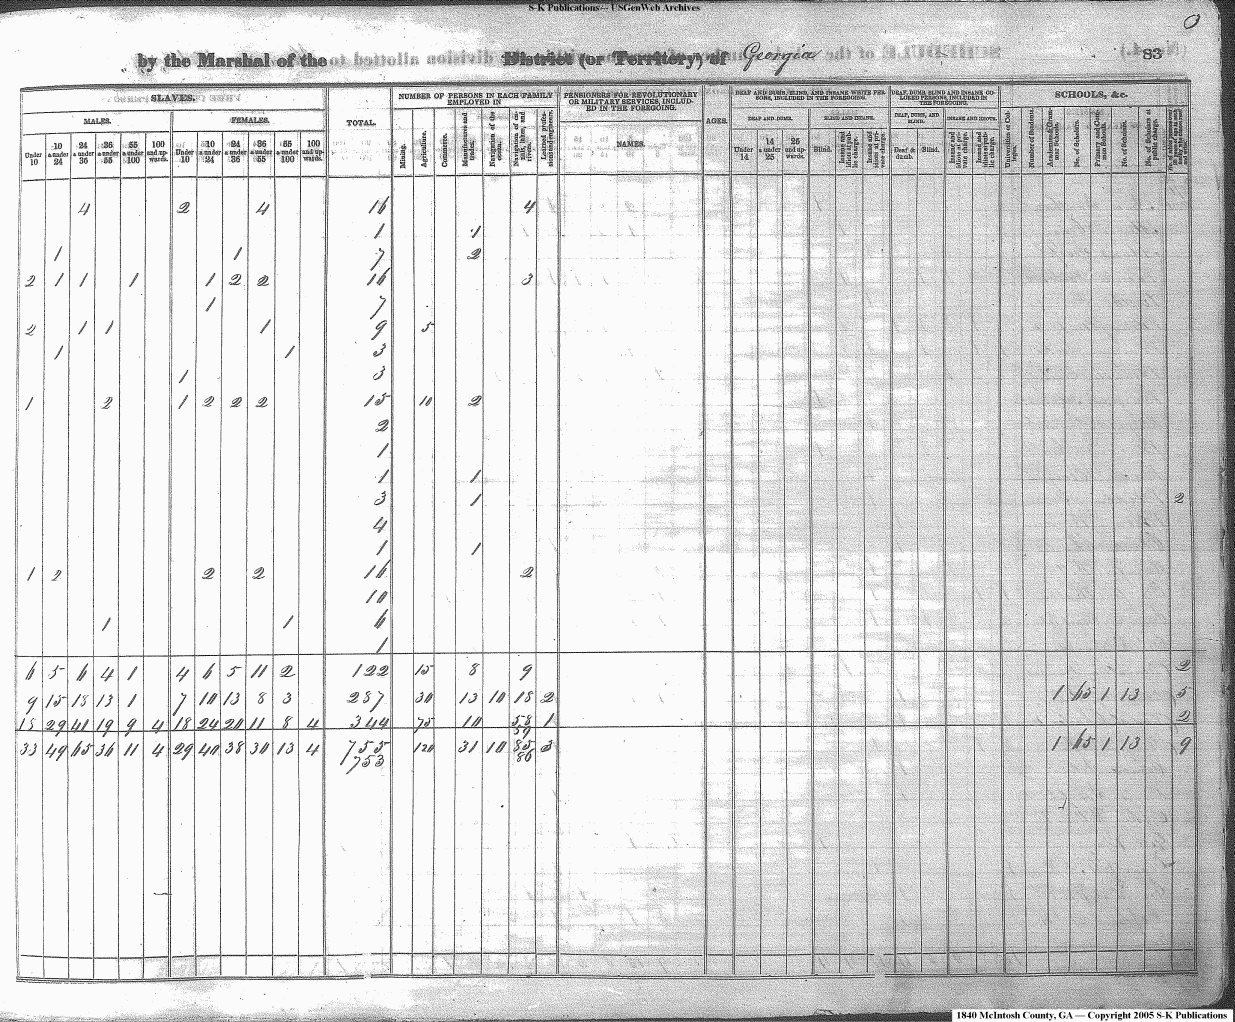 S-K Publications — USGenWeb Archives
by the Marshal of the District (or Territory) of Georgia 83
SLAVES.
MALES. FEMALES.
Under 10 | 10 & under 24 | 24 & under 36 | 36 & under 55 | 55 & under 100 | 100 and upwards. | Under 10 | 10 & under 24 | 24 & under 36 | 36 & under 55 | 55 & under 100 | 100 and upwards.
TOTAL.
NUMBER OF PERSONS IN EACH FAMILY EMPLOYED IN
Mining. | Agriculture. | Commerce. | Manufactures and trades. | Navigation of the ocean. | Navigation of canals, lakes, and rivers. | Learned professions and engineers.
PENSIONERS FOR REVOLUTIONARY OR MILITARY SERVICES, INCLUDED IN THE FOREGOING.
NAMES.
AGES.
DEAF AND DUMB, BLIND, AND INSANE WHITE PERSONS, INCLUDED IN THE FOREGOING.
DEAF AND DUMB. BLIND AND INSANE.
Under 14 | 14 & under 25 | 25 and upwards. | Blind. | Insane and idiots at public charge. | Insane and idiots at private charge.
DEAF, DUMB, BLIND AND INSANE COLORED PERSONS, INCLUDED IN THE FOREGOING.
DEAF, DUMB, AND BLIND. INSANE AND IDIOTS.
Deaf & dumb. | Blind. | Insane and idiots at private charge. | Insane and idiots at public charge.
SCHOOLS, &c.
Universities or Colleges. | Number of Students. | Academies & Grammar Schools. | No. of Scholars. | Primary and Common Schools. | No. of Scholars. | No. of Scholars at public charge.
4 2 4 16 4
1 1
1 1 7 2
2 1 1 1 1 2 2 16 3
1 7
2 1 1 1 9 5
1 1 3
1 3
1 2 1 2 2 2 15 10 2
2
1
1 1
3 1 2
4
1 1
1 2 2 2 16 2
10
1 1 6
1
6 5 6 4 1 4 6 5 11 2 122 15 8 9 2
9 15 18 13 1 7 10 13 8 3 287 30 13 10 18 2 1 65 1 13 5
18 29 41 19 9 4 18 24 20 11 8 4 344 75 10 58 1 2
59
33 49 65 36 11 4 29 40 38 30 13 4 755 120 31 10 85 3 1 65 1 13 9
753 86
1840 McIntosh County, GA — Copyright 2005 S-K Publications